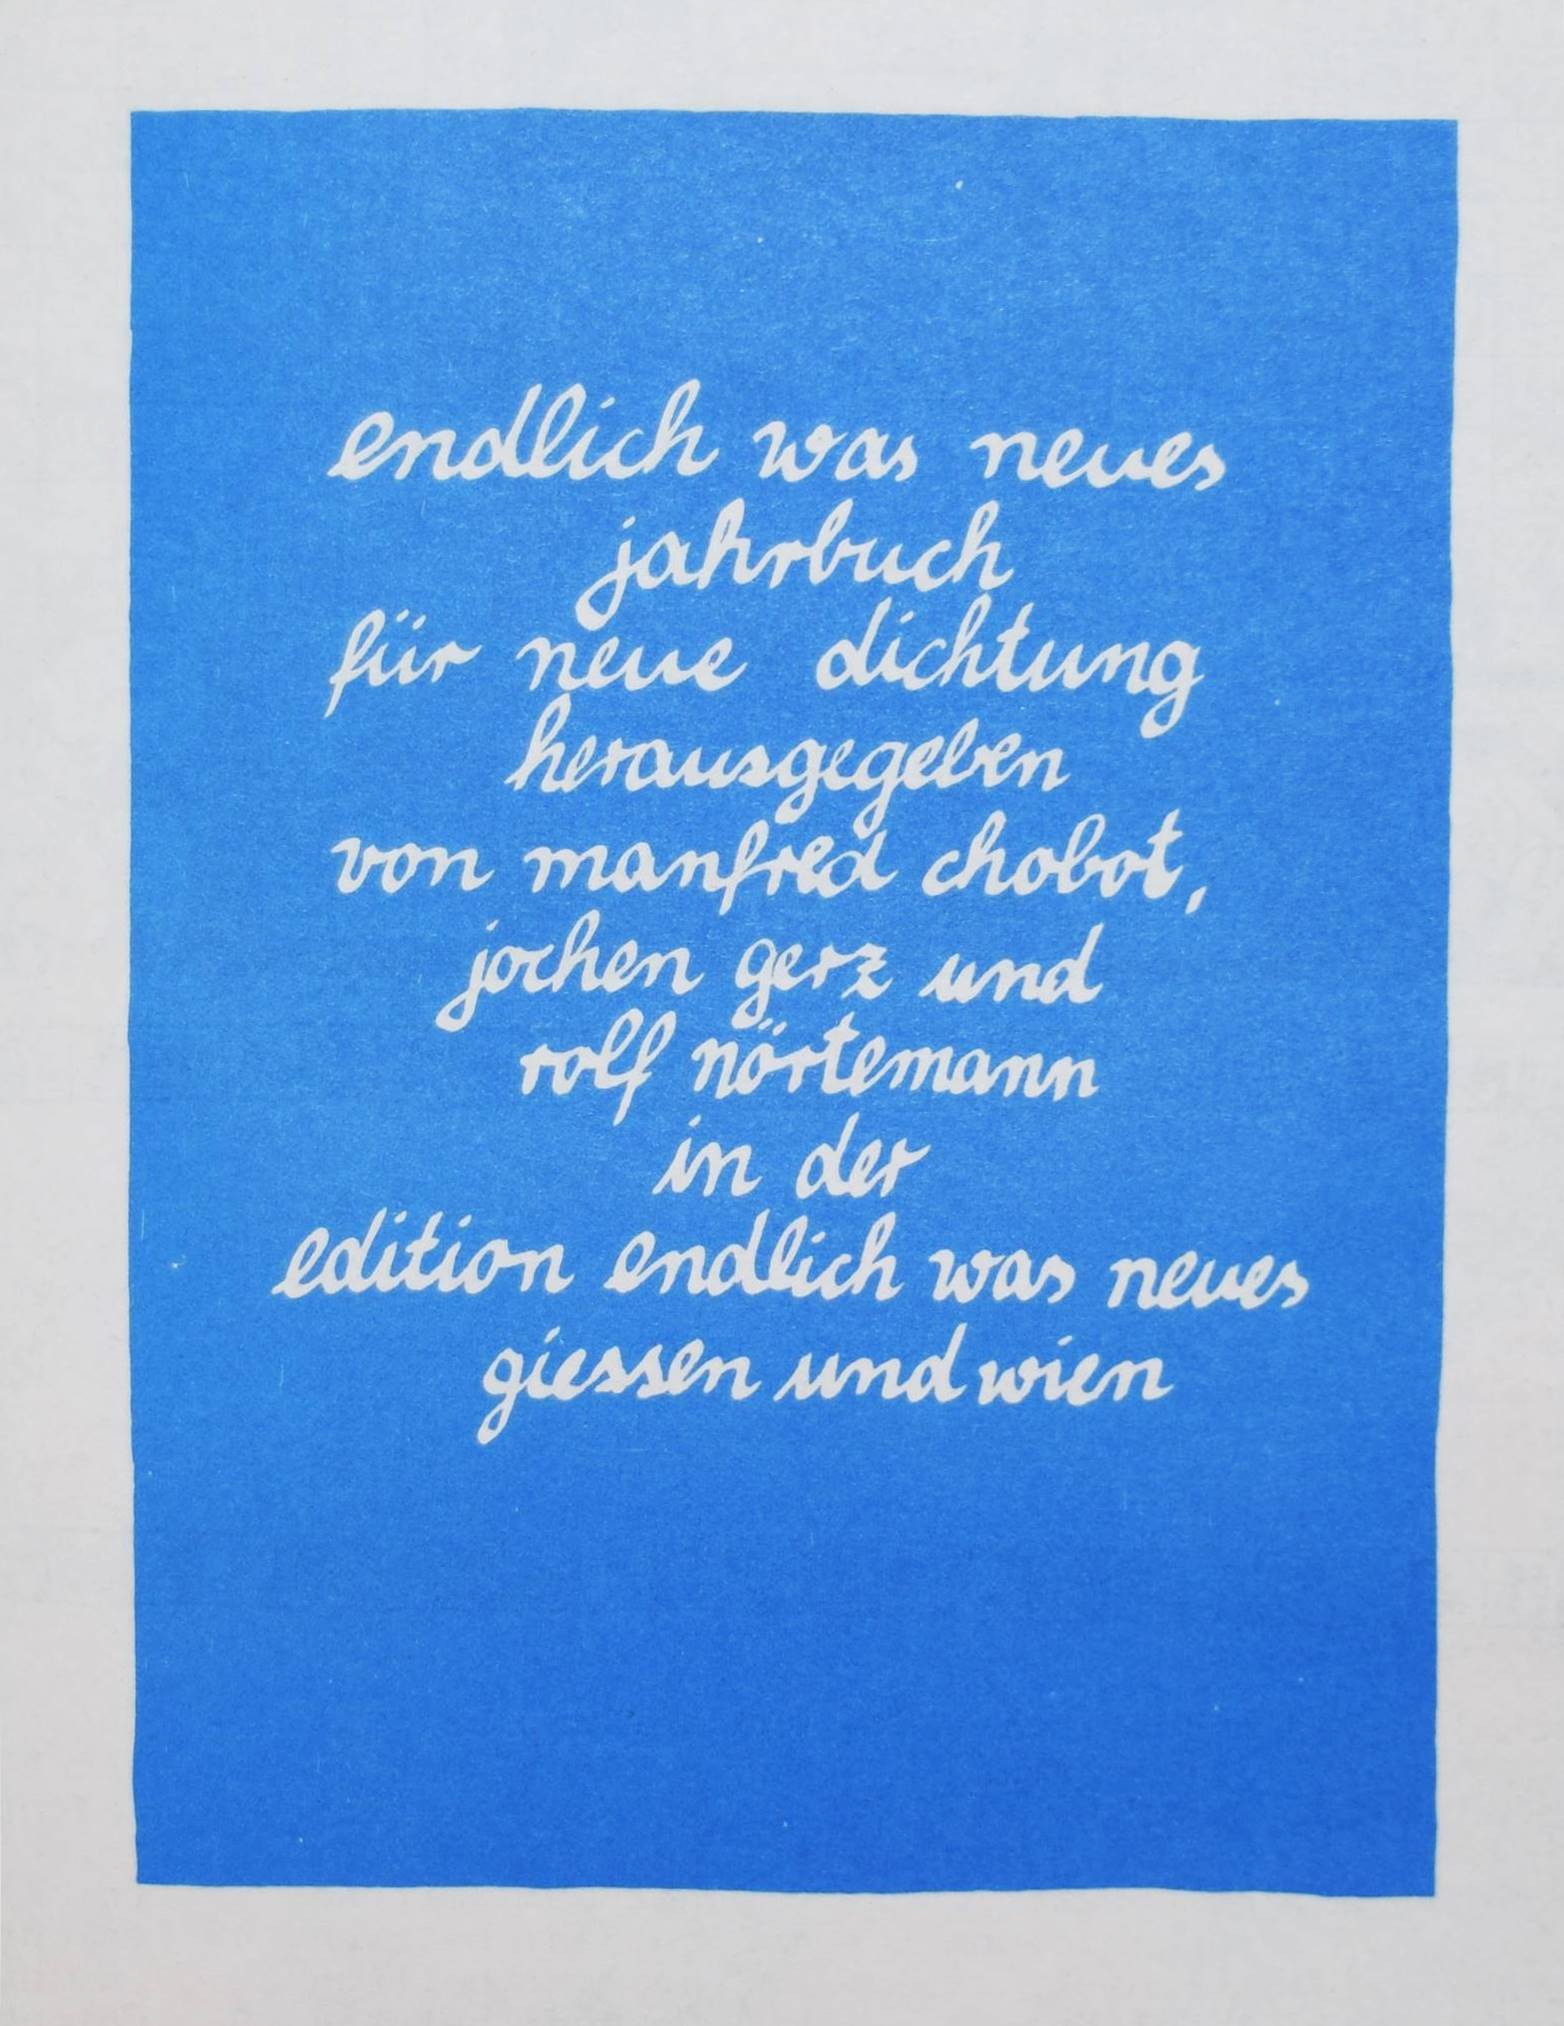 endlich was neues
jahrbuch
für neue dichtung
herausgegeben
von manfred chobot,
jochen gerz und
rolf nörtemann
in der
edition endlich was neues
giessen und wien